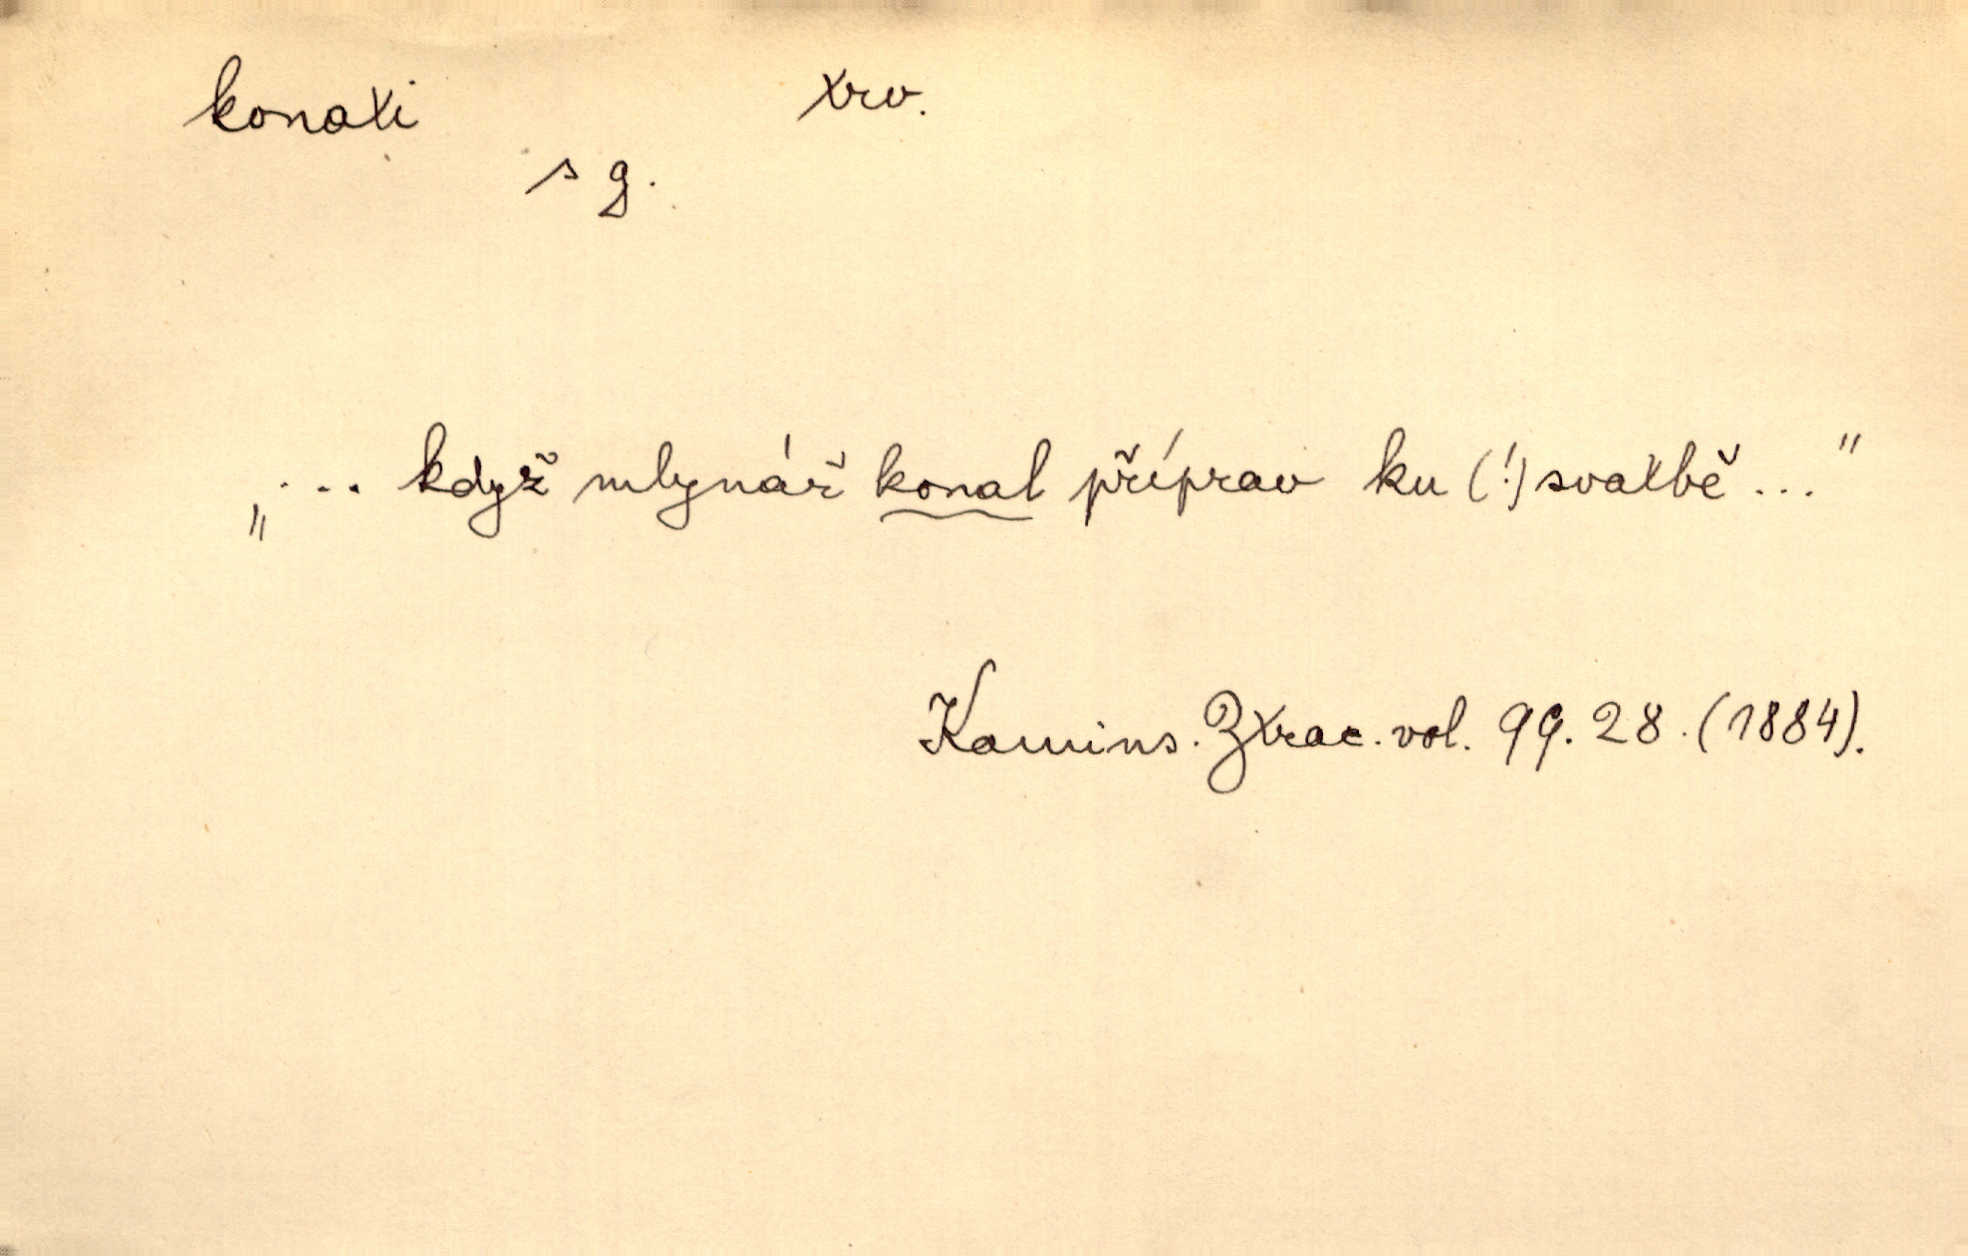 konati trv.
s g.
„... když mlynář konal příprav ku (!) svatbě ..."
Kamins. Ztrac. vol. 99. 28. (1884).